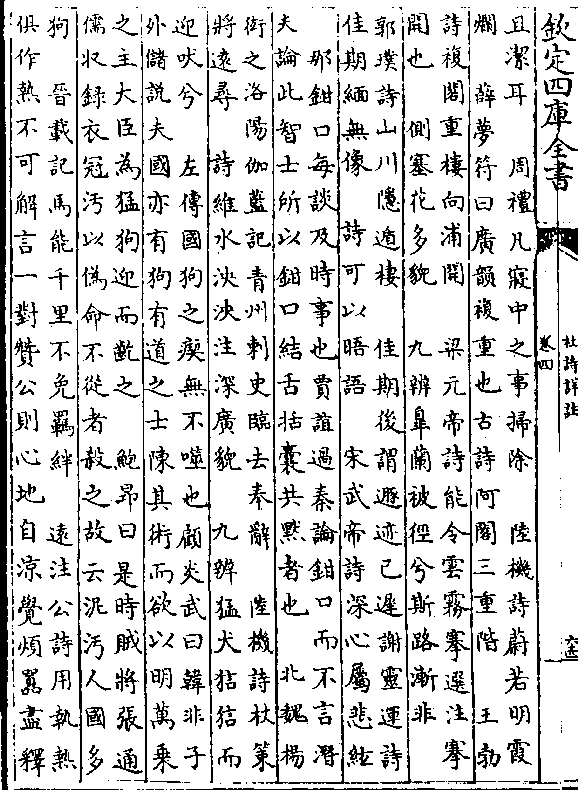 欽定四庫全書
杜詩詳註
卷四
且潔耳　周禮凡寢中之事掃除　陸機詩蔚若明霞
爛　薛夢符曰廣韻複重也古詩阿閣三重階　王勃
詩複閣重樓向浦開　梁元帝詩能令雲霧搴選注搴
開也　側塞花多貌　九辨臯蘭被徑兮斯路漸非
郭璞詩山川隱遁棲　佳期後謂遯迹已遲謝靈運詩
佳期緬無像　詩可以晤語　宋武帝詩深心屬悲絃
那鉗口每談及時事也賈誼過秦論鉗口而不言潛
夫論此智士所以鉗口結舌括囊共默者也　北魏楊
衒之洛陽伽藍記青州刺史臨去奉辭　陸機詩杖策
將遠尋　詩維水泱泱注深廣貌　九辨猛犬狺狺而
迎吠兮　左傳國狗之瘈無不噬也顧炎武曰韓非子
外儲說夫國亦有狗有道之士陳其術而欲以明萬乘
之主大臣為猛狗迎而齕之　鮑昂曰是時賊將張通
儒收錄衣冠汚以偽命不從者殺之故云泥汚人國多
狗　晉載記馬能千里不免羈絆　遠注公詩用執熱
俱作熱不可解言一對贊公則心地自涼覺煩囂盡釋